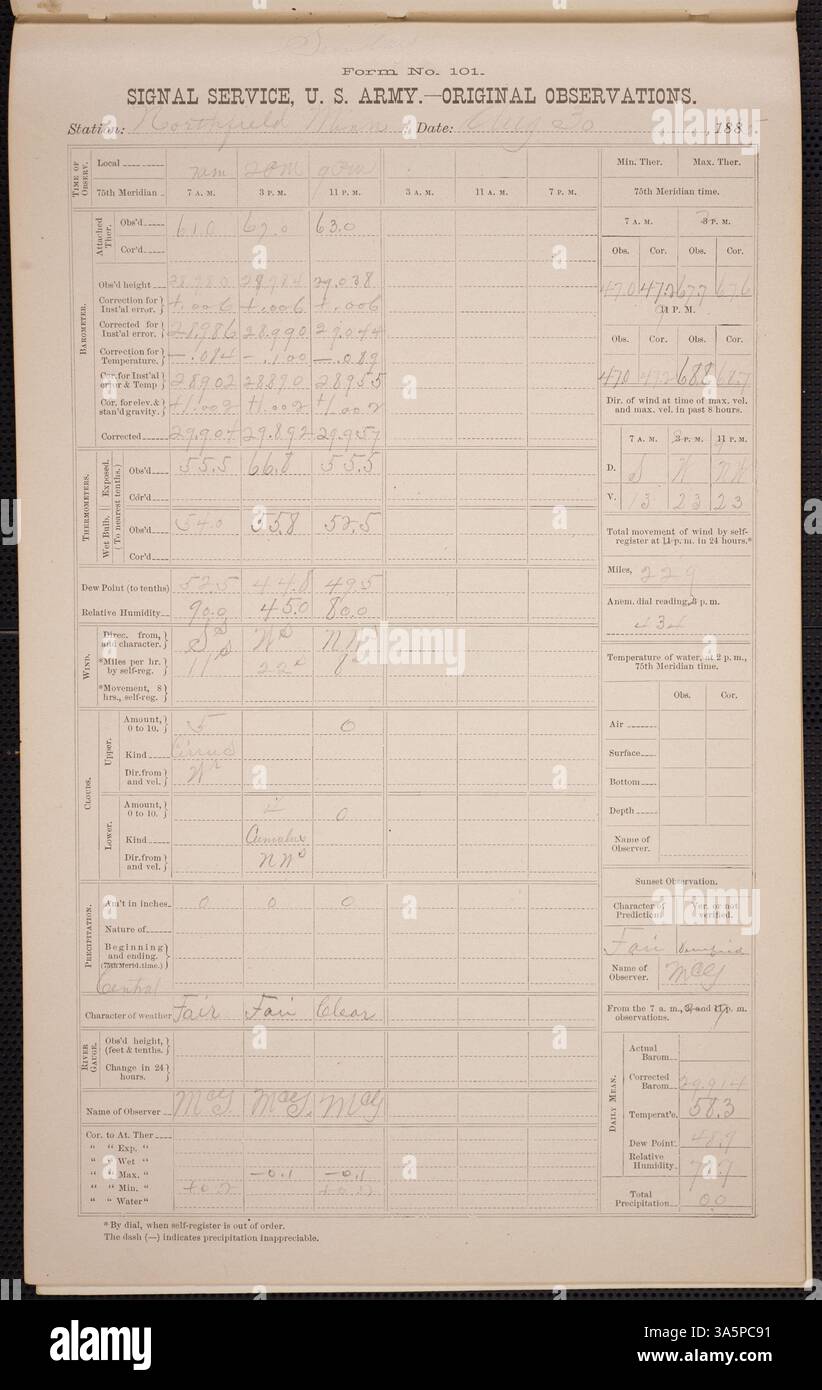 Form No. 101.
SIGNAL SERVICE, U. S. ARMY.—ORIGINAL OBSERVATIONS.
Station: Northfield Minn Date: Aug 30, 188
TIME OF OBSERV. Local 7am 2 PM 9 PM
75th Meridian 7 A. M. 3 P. M. 11 P. M. 3 A. M. 11 A. M. 7 P. M.
Attached Ther. Obs'd 61.0 67.0 63.0
Cor'd
BAROMETER.
Obs'd height 28.980 28.984 29.038
Correction for Inst'al error. +.006 +.006 +.006
Corrected for Inst'al error. 28.986 28.990 29.044
Correction for Temperature. —.084 —.100 —.089
Cor. for Inst'al error & Temp 28.902 28.890 28.955
Cor. for elev. & stan'd gravity. +1.002 +1.002 +1.002
Corrected 29.904 29.892 29.957
THERMOMETERS. (To nearest tenths.)
Exposed. Obs'd 55.5 66.8 55.5
Cor'd
Wet Bulb. Obs'd 54.0 55.8 52.5
Cor'd
Dew Point (to tenths) 52.5 44.8 49.5
Relative Humidity 90.0 45.0 80.0
WIND.
Direc. from, and character. S W NW
*Miles per hr. by self-reg. 11 22
*Movement, 8 hrs., self-reg.
CLOUDS.
Upper. Amount, 0 to 10. 5 0
Kind Cirrus
Dir. from and vel. W
Lower. Amount, 0 to 10. 0
Kind Cumulus
Dir. from and vel. NW
PRECIPITATION.
Am't in inches 0 0 0
Nature of
Beginning and ending. (75th Merid. time.)
Central
Character of weather Fair Fair Clear
RIVER GAUGE.
Obs'd height, (feet & tenths.
Change in 24 hours.
Name of Observer McG. McG. McG
Cor. to At. Ther
“ “ Exp. “
“ “ Wet “
“ “ Max. “ —0.1 —0.1
“ “ Min. “ +0.2 +0.2
“ “ Water “
* By dial, when self-register is out of order.
The dash (—) indicates precipitation inappreciable.
Min. Ther. Max. Ther.
75th Meridian time.
7 A. M. 3 P. M.
Obs. Cor. Obs. Cor.
47.0 47.2 67.7 67.6
11 P. M.
Obs. Cor. Obs. Cor.
47.0 47.2 68.8 68.7
Dir. of wind at time of max. vel. and max. vel. in past 8 hours.
7 A. M. 3 P. M. 11 P. M.
D. S W NW
V. 13 23 23
Total movement of wind by self-register at 11 p. m. in 24 hours.*
Miles, 229
Anem. dial reading, 3 p. m.
434
Temperature of water, at 2 p. m., 75th Meridian time.
Obs. Cor.
Air
Surface
Bottom
Depth
Name of Observer.
Sunset Observation.
Character of Prediction. Ver. or not verified.
Fair Verified
Name of Observer. McG
From the 7 a. m., 3, and 11 p. m. observations.
DAILY MEAN.
Actual Barom.
Corrected Barom. 29.914
Temperat'e. 58.3
Dew Point. 48.9
Relative Humidity. 71.7
Total Precipitation. 0.0
alamy
Image ID: 3A5PC91
www.alamy.com